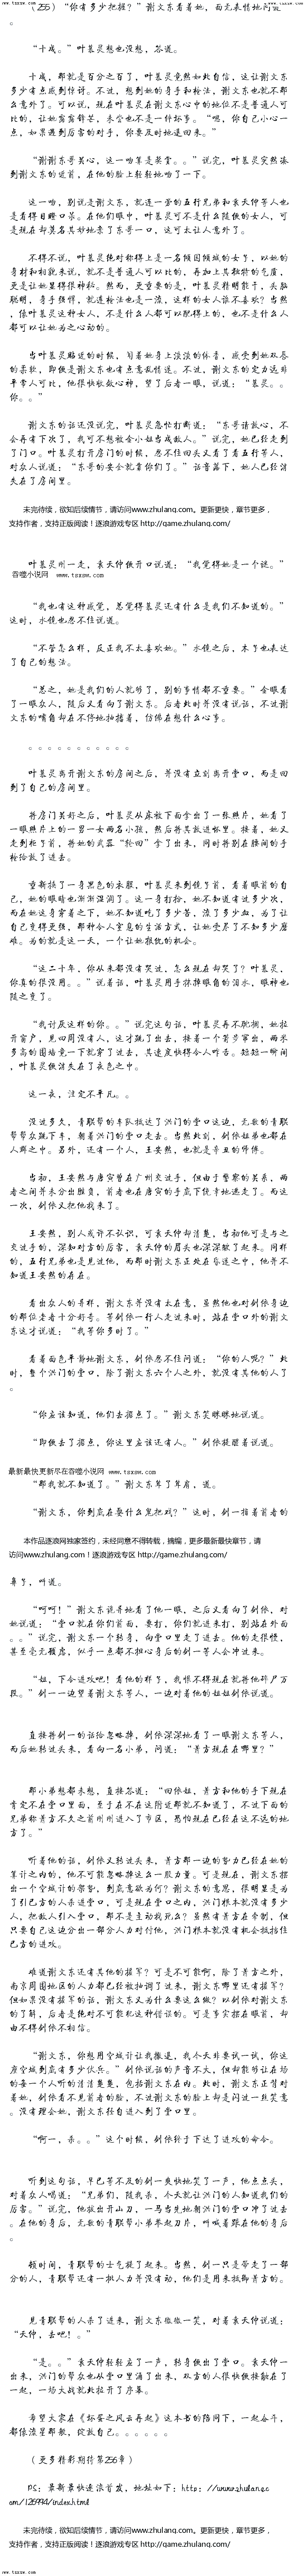 www.tsxsw.com
(255)“你有多少把握?”谢文东看着她，面无表情地问道
。
“十成。”叶慕灵想也没想，答道。
十成，那就是百分之百了，叶慕灵竟然如此自信，这让谢文东
多少有点感到惊讶。不过，想到她的身手和枪法，谢文东也就不那
么意外了。可以说，现在叶慕灵在谢文东心中的地位不是普通人可
比的，让她露露锋芒，未尝也不是一件好事。“嗯，你自己小心一
点，如果遇到厉害的对手，你要及时地退回来。”
“谢谢东哥关心，这一吻算是奖赏。。”说完，叶慕灵突然凑
到谢文东的近前，在他的脸上轻轻地吻了一下。
这一吻，别说是谢文东，就连一旁的五行兄弟和袁天仲等人也
是看得目瞪口呆。在他们眼中，叶慕灵可不是什么随便的女人，可
是现在却莫名其妙地亲了东哥一口，这可太让人意外了。
不得不说，叶慕灵绝对称得上是一名倾国倾城的女子，以她的
身材和相貌来说，就不是普通人可以比的，再加上其独特的气质，
更是让她显得很神秘。然而，更重要的是，叶慕灵精明能干，头脑
聪明，身手强悍，就连枪法也是一流，这样的女人谁不喜欢？当然
，像叶慕灵这种女人，不是什么人都可以配得上的，也不是什么人
都可以让她为之心动的。
当叶慕灵贴近的时候，闻着她身上淡淡的体香，感受到她双唇
的柔软，即便是谢文东也有点意乱情迷。不过，谢文东的定力远非
平常人可比，他很快收敛心神，望了后者一眼，说道：“慕灵。。
你。。”
谢文东的话还没说完，叶慕灵急忙打断道：“东哥请放心，不
会再有下次了，我可不想被金小姐当成敌人。”说完，她已经走到
了门口。叶慕灵打开房门的时候，忽不住回头又看了看五行等人，
对众人说道：“东哥的安全就靠你们了。”话音落下，她人已经消
失在了房间里。
未完待续，欲知后续情节，请访问www.zhulang.com。更新更快，章节更多，
支持作者，支持正版阅读！逐浪游戏专区 http://game.zhulang.com/
叶慕灵刚一走，袁天仲便开口说道：“我觉得她是一个谜。”
吞噬小说网 www.tsxsw.com
“我也有这种感觉，总觉得慕灵还有什么是我们不知道的。”
这时，水镜也忍不住说道。
“不管怎么样，反正我不太喜欢她。”水镜之后，木子也表达
了自己的想法。
“总之，她是我们的人就够了，别的事情都不重要。”金眼看
了一眼众人，随后又看向了谢文东。后者此时并没有说话，不过谢
文东的嘴角却在不停地抽搐着，仿佛在想什么心事。
。。。。。。。。。。。
叶慕灵离开谢文东的房间之后，并没有立刻离开堂口，而是回
到了自己的房间里。
将房门关好之后，叶慕灵从床被下面拿出了一张照片，她看了
一眼照片上的一男一女两名小孩，然后将其放进怀里。接着，她又
走到柜子前，将她的武器“轮回”拿了出来，同时将别在腰间的手
枪给放了进去。
重新换了一身黑色的衣服，叶慕灵来到镜子前，看着眼前的自
己，她的眼睛也渐渐湿润了。这一身打扮，她不知道有过多少次，
而在她这身穿着之下，她不知道吃了多少苦，流了多少血，为了让
自己变得更强，那种令人窒息的生活方式，让她受尽了不知多少磨
难。为的就是这一天，一个让她报仇的机会。
“这二十年，你从来都没有哭过，怎么现在却哭了？叶慕灵，
你真的很没用。。”说着话，叶慕灵用手抹掉眼角的泪水，眼神也
随之变了。
“我讨厌这样的你。。”说完这句话，叶慕灵再不耽搁，她拉
开窗户，见四周没有人，这才跳了出去，接着一个箭步窜出，两米
多高的围墙竟一下就窜了过去，其速度快得令人咋舌。短短一瞬间
，叶慕灵便消失在了夜色之中。
这一夜，注定不平凡。。
没过多久，青联帮的车队抵达了洪门的堂口这边，无数的青联
帮帮众跳下车，朝着洪门的堂口走去。当然此刻，剑依姐弟也都在
人群之中。另外，还有一个人，王安然，也就是辛丑的师傅。
当初，王安然与唐寅曾在广州交过手，但由于警察的关系，两
者之间并未分出胜负，前者也在唐寅的手底下侥幸地逃走了。而这
一次，剑依又把他找来了。
王安然，别人或许不认识，可袁天仲却清楚，当初他可是与之
交过手的，深知对方的厉害，袁天仲的眉头也深深皱了起来。同样
的，五行兄弟也是见过他，而那时谢文东正处在昏迷之中，他并不
知道王安然的存在。
看出众人的异样，谢文东并没有太在意，虽然他也对剑依身边
的那位老者十分好奇。等剑依一行人走过来时，站在堂口外的谢文
东这才说道：“我等你多时了。”
看着面色平静地谢文东，剑依忍不住问道：“你的人呢？”此
时，整个洪门的堂口，除了谢文东六个人之外，就没有其他的人了
。
“你应该知道，他们去据点了。”谢文东笑眯眯地说道。
“即便去了据点，你这里应该还有人。”剑依提醒着说道。
最新最快更新尽在吞噬小说网 www.tsxsw.com
“那我就不知道了。”谢文东耸了耸肩，道。
“谢文东，你到底在耍什么鬼把戏？”这时，剑一指着前者的
本作品逐浪网独家签约，未经同意不得转载，摘编，更多最新最快章节，请
访问www.zhulang.com！逐浪游戏专区 http://game.zhulang.com/
鼻子，叫道。
“呵呵！”谢文东诡异地看了他一眼，之后又看向了剑依，对
她说道：“堂口就在你们前面，要打，你们就进来打，别站在外面
。。”说完，谢文东一个转身，向堂口里走了进去。他的走很慢，
甚至毫无顾虑，似乎一点都不担心身后的剑一等人会冲过来。
“姐，下令进攻吧！看他的样子，我恨不得现在就将他碎尸万
段。”剑一一边望着谢文东等人，一边对着他的姐姐剑依说道。
直接将剑一的话给忽略掉，剑依深深地看了一眼谢文东等人，
而后她转过头来，看向一名小弟，问道：“青方现在在哪里？”
那小弟想都未想，直接答道：“回依姐，青方和他的手下现在
肯定不在堂口里面，至于在不在这附近那就不知道了，不过下面的
兄弟称青方不久之前刚刚进入了市区，恐怕现在已经在这不远的地
方了。”
听着他的话，剑依又转过头来，青方那一边的势力已经在她的
算计之内的，他不可能忽略掉这么一股力量。可是现在，谢文东摆
出一个空城计的架势，到底意欲为何？谢文东的意思，很明显是为
了引己方的人杀进堂口，可是现在堂口之内，洪门根本就没有多少
人，把敌人引入堂口，那不是主动找死么？虽然有青方在牵制，但
只要自己这边分出一部分人力对付他，洪门根本就没有机会抵挡住
己方的进攻。
难道谢文东还有其他的援军？可是不可能啊，除了青方之外，
南京周围地区的人力都已经被抽调了过来，谢文东哪里还有援军？
但如果没有援军的话，谢文东又为什么要这么做？以剑依对谢文东
的了解，后者是绝对不可能犯这种错误的。可是事实摆在眼前，却
由不得剑依不相信。
“谢文东，你想用空城计让我撤退，我今天非要试一试，你这
座空城到底有多少伏兵。”剑依说话的声音不大，但却能够让在场
的每一个人听的清清楚楚，包括谢文东在内。此时，谢文东正背对
着她，剑依看不见前者的脸，不过谢文东的脸上却是闪过一丝笑意
。没有理会她，谢文东径自进入到了堂口里。
“剑一，杀。。”这个时候，剑依终于下达了进攻的命令。
听到这句话，早已等不及的剑一爽快地笑了一声，他点点头，
对着众人喝道：“兄弟们，随我杀，今天就让洪门的人知道我们的
厉害。”说完，他拔出开山刀，一马当先地朝洪门的堂口冲了过去
。在他的身后，无数的青联帮小弟举起刀片，叫喊着跟在他的身后
。
顿时间，青联帮的士气提了起来。当然，剑一只是带走了一部
分的人，青联帮还有一批人并没有动，他们是用来抵御青方的。
见青联帮的人杀了进来，谢文东微微一笑，对着袁天仲说道：
“天仲，去吧！。”
“是。。”袁天仲轻轻应了一声，转身便出了堂口。袁天仲一
出来，洪门的帮众也从堂口里涌了出来，双方的人很快便接触在了
一起，一场大战就此拉开了序幕。
希望大家在《坏蛋之风云再起》这本书的陪同下，一起奋斗，
都像流星那般，绽放自己。。。。。。
（更多精彩期待第256章）
PS：最新最快逐浪首发，地址如下：http：//www.zhulang.c
om/126994/index.html
未完待续，欲知后续情节，请访问www.zhulang.com。更新更快，章节更多，
支持作者，支持正版阅读！逐浪游戏专区 http://game.zhulang.com/
www.tsxsw.com